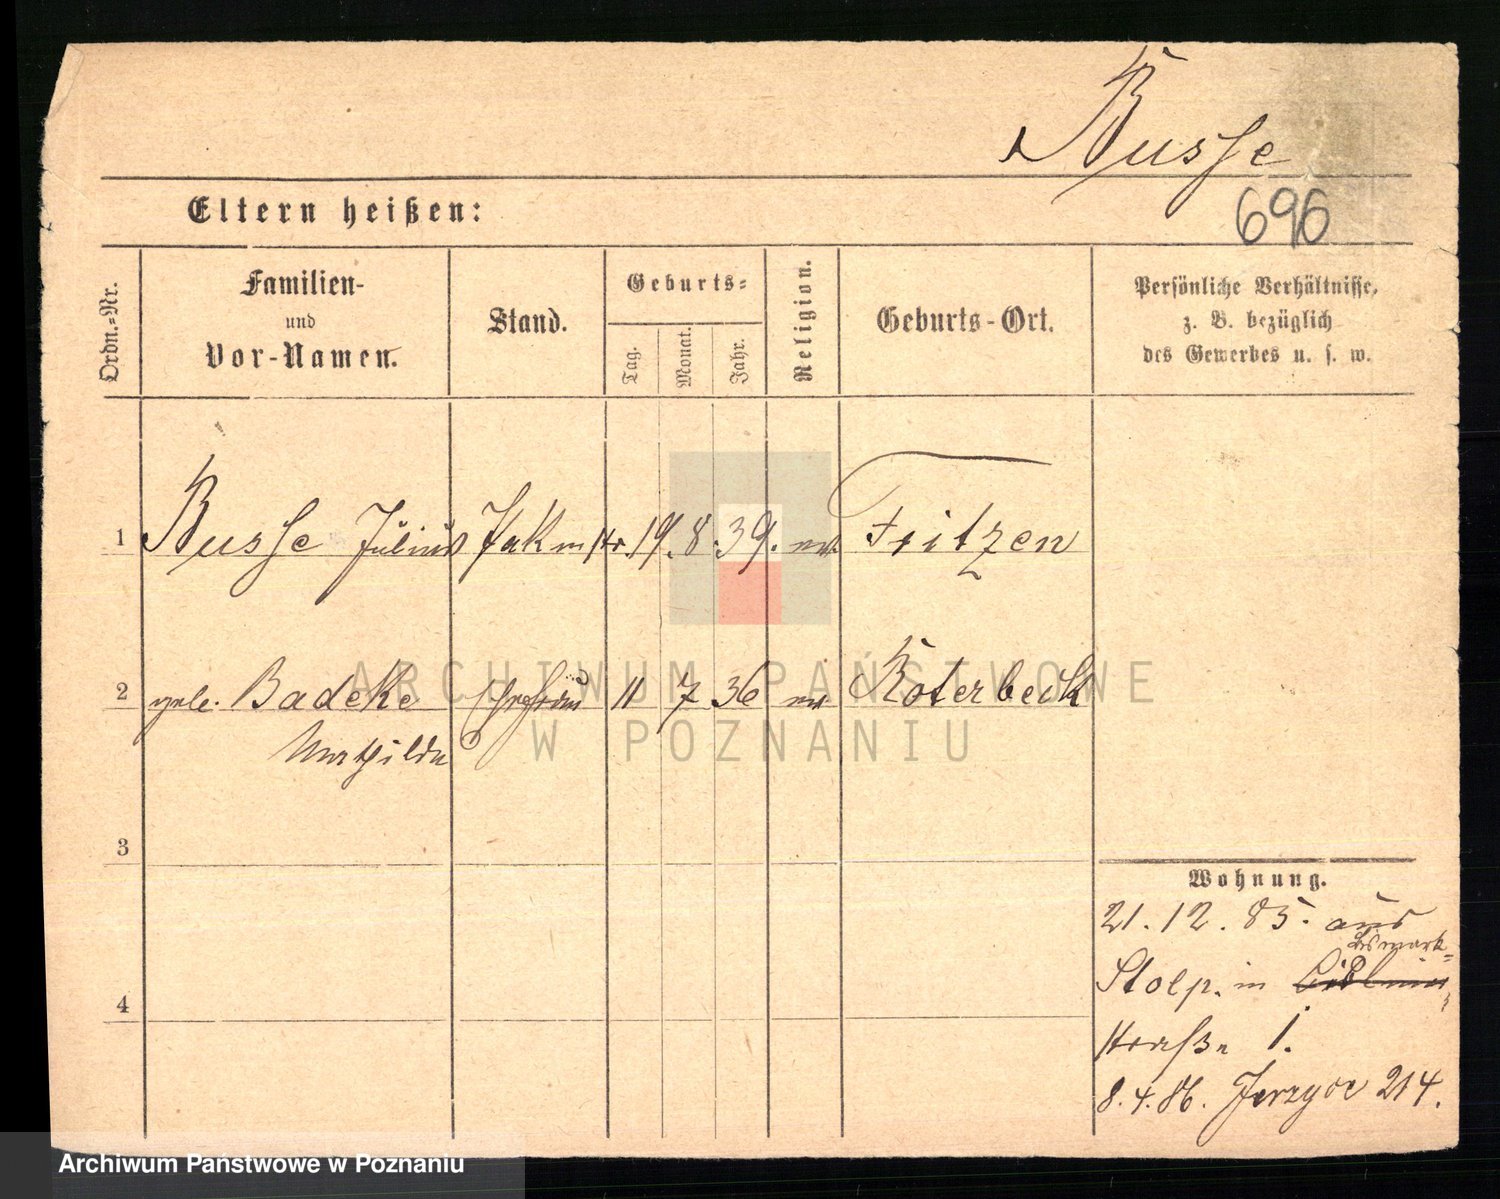 Busse
Eltern heißen:
696
Ordn.-Nr.
Familien-
und
Vor-Namen.
Stand.
Geburts-
Tag.
Monat.
Jahr.
Religion.
Geburts-Ort.
Persönliche Verhältnisse,
z. B. bezüglich
des Gewerbes u. s. w.
1 Busse Julius 19. 8. 39. ev. Fritzen
2 geb. Badeke Ehefrau 11 7 36 ev. Köterbeck
Mathilde
3
4
Wohnung.
21. 12. 85. aus
Bismark-
Stolp. in
straße 1.
8. 4. 86. Jerzyce 214.
ARCHIWUM PAŃSTWOWE
W POZNANIU
Archiwum Państwowe w Poznaniu